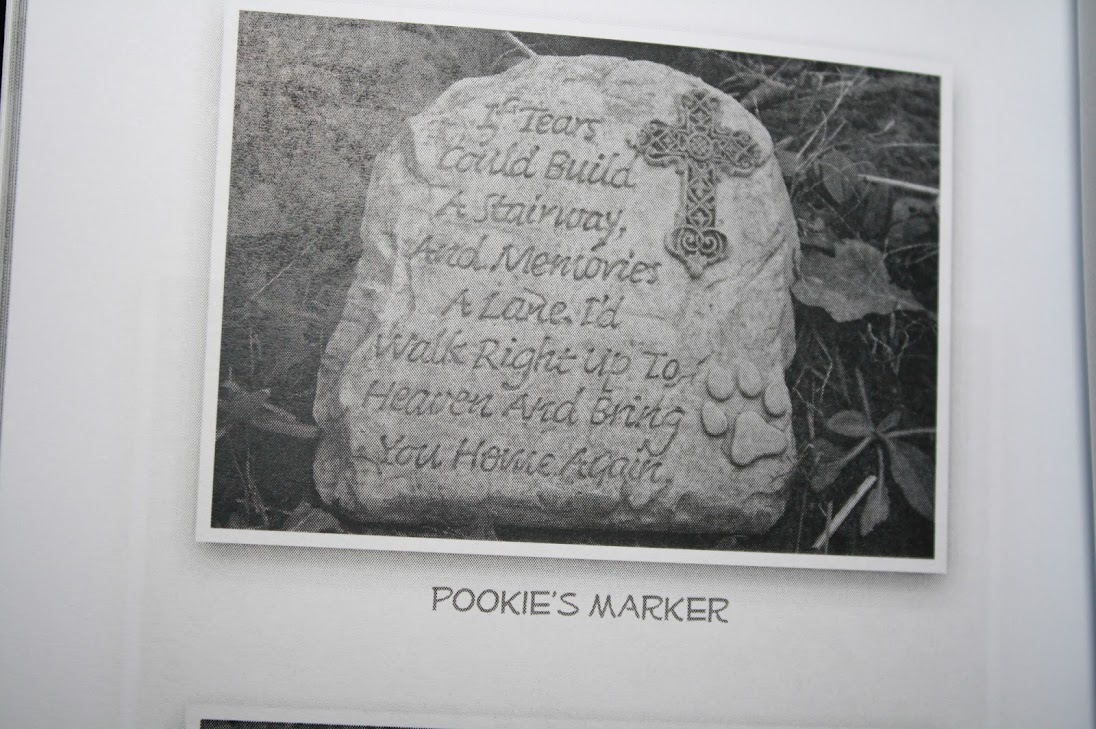 If Tears
Could Build
A Stairway,
And Memories
A Lane. I'd
Walk Right Up To
Heaven And Bring
You Home Again
POOKIE'S MARKER